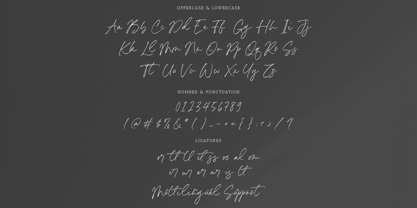 UPPERCASE & LOWERCASE
Aa Bb Cc Dd Ee Ff Gg Hh Ii Jj
Kk Ll Mm Nn Oo Pp Qq Rr Ss
Tt Uu Vv Ww Xx Yy Zz
NUMBER & PUNCTUATION
0123456789
(@#$%&*()_-+={}:;>/?
LIGATURES
or tt ll it ss os al om
ir ur er ar is lt
Multilingual Support